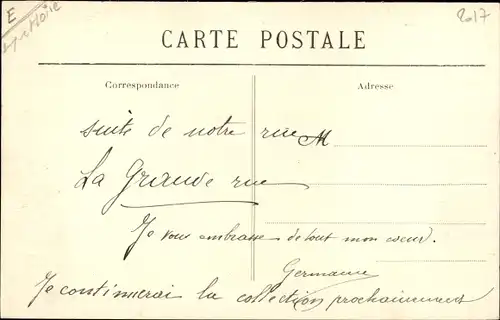 E
2017
CARTE POSTALE
Correspondance
Adresse
suite de notre rue
M
La Grande rue
Je vous embrasse de tout mon coeur.
Germaine
Je continuerai la collection prochainement